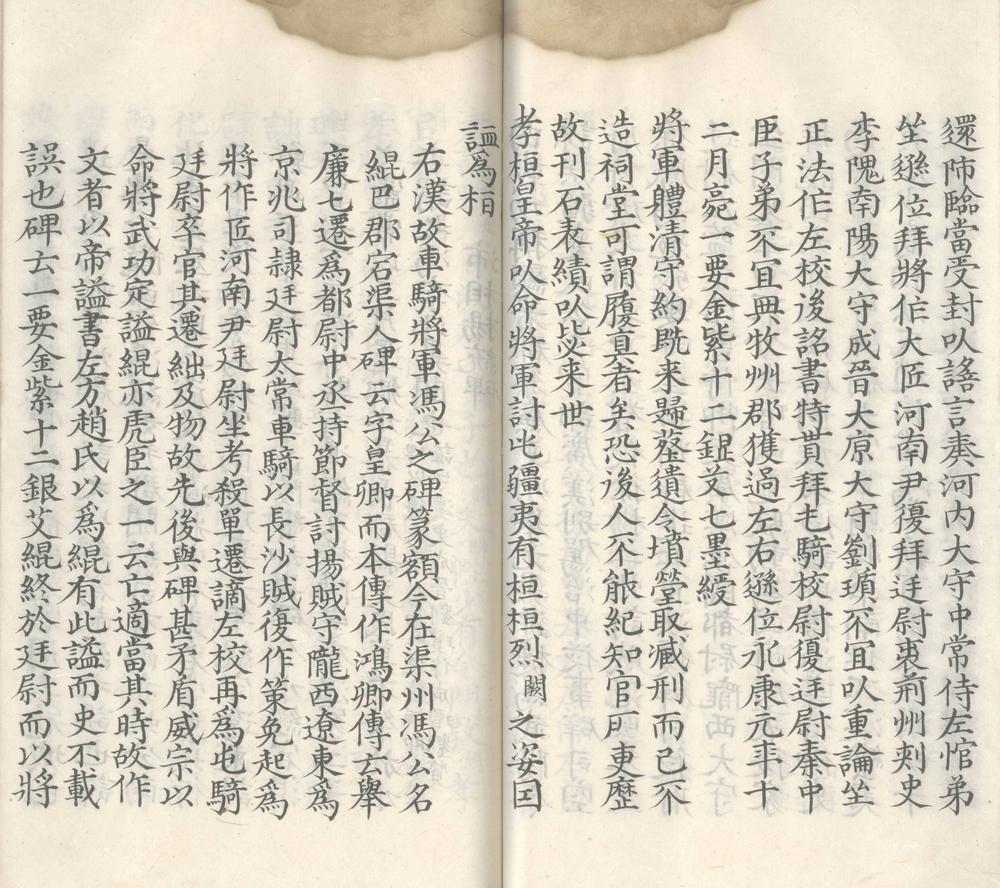 還師臨當受封以謠言奏河內大守中常侍左悺弟
坐遜位拜將作大匠河南尹復拜廷尉表荊州刺史
李隗南陽大守成晉大原大守劉瓆不宜以重論坐
正法作左校後詔書特貰拜屯騎校尉復廷尉奏中
臣子弟不宜典牧州郡獲過左右遜位永康元年十
二月薨一要金紫十二銀艾七墨綬
將軍體清守約旣來歸葬遺令墳塋取臧刑而已不
造祠堂可謂履真者矣恐後人不能紀知官所更歷
故刊石表績以毖來世
孝桓皇帝以命將軍討此疆夷有桓桓烈闕之姿因
謚為桓
右漢故車騎將軍馮公之碑篆額今在渠州馮公名
緄巴郡宕渠人碑云字皇卿而本傳作鴻卿傳云舉
廉七遷為都尉中丞持節督討揚賊守隴西遼東為
京兆司隸廷尉太常車騎以長沙賊復作策免起為
將作匠河南尹廷尉坐考殺單遷謫左校再為屯騎
廷尉卒官其遷絀及物故先後與碑甚矛盾威宗以
命將武功定謚緄亦虎臣之一云亡適當其時故作
文者以帝謚書左方趙氏以為緄有此謚而史不載
誤也碑云一要金紫十二銀艾緄終於廷尉而以將